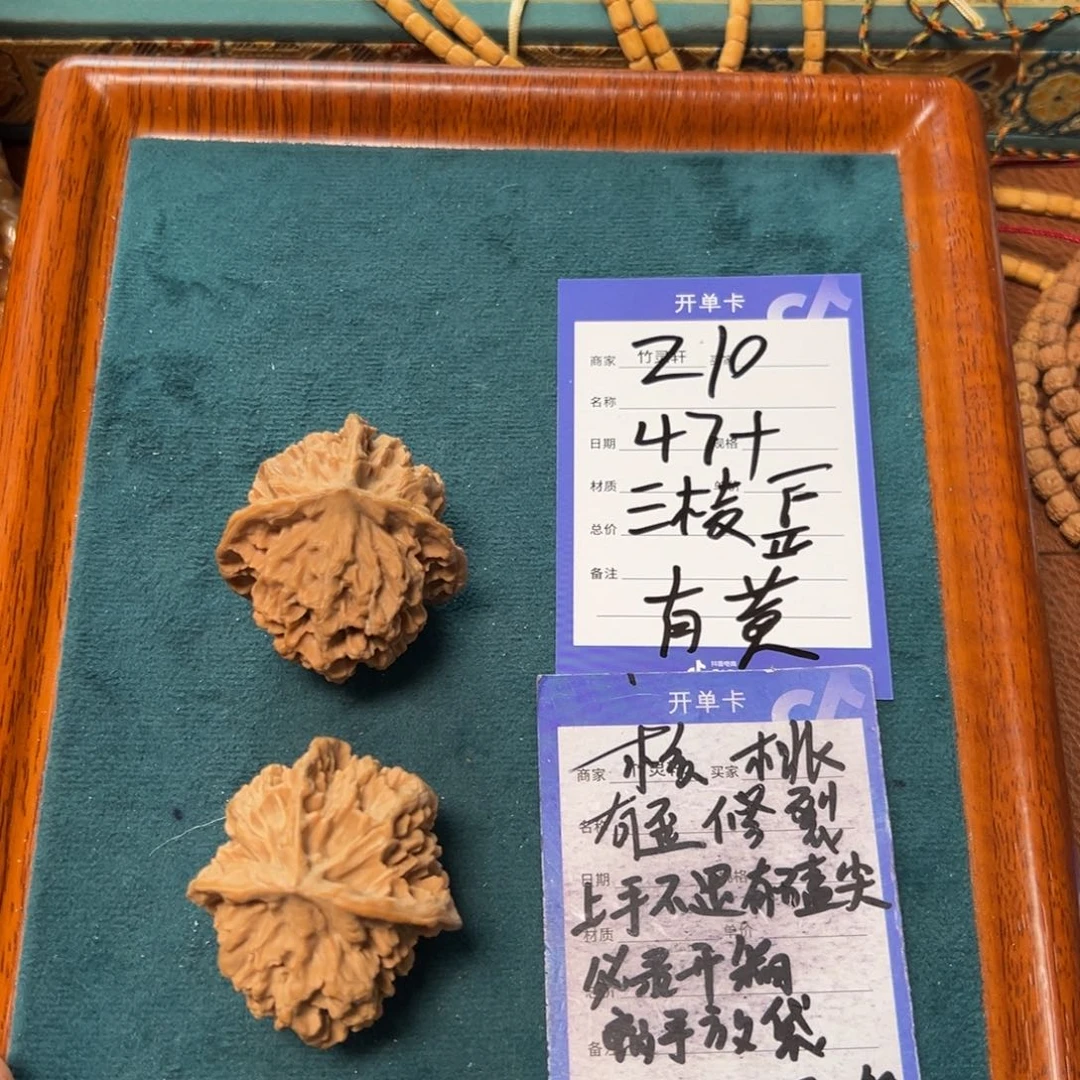 开单卡
商家 竹灵轩 买家
210
名称
日期 47+ 规格
材质 三棱歪
总价
备注
有黄
抖音电商
开单卡
商家 核 买家 桃
名称 有歪修裂
日期
上手不退有磕尖
材质 单价
必录开箱
备注 勿手放袋